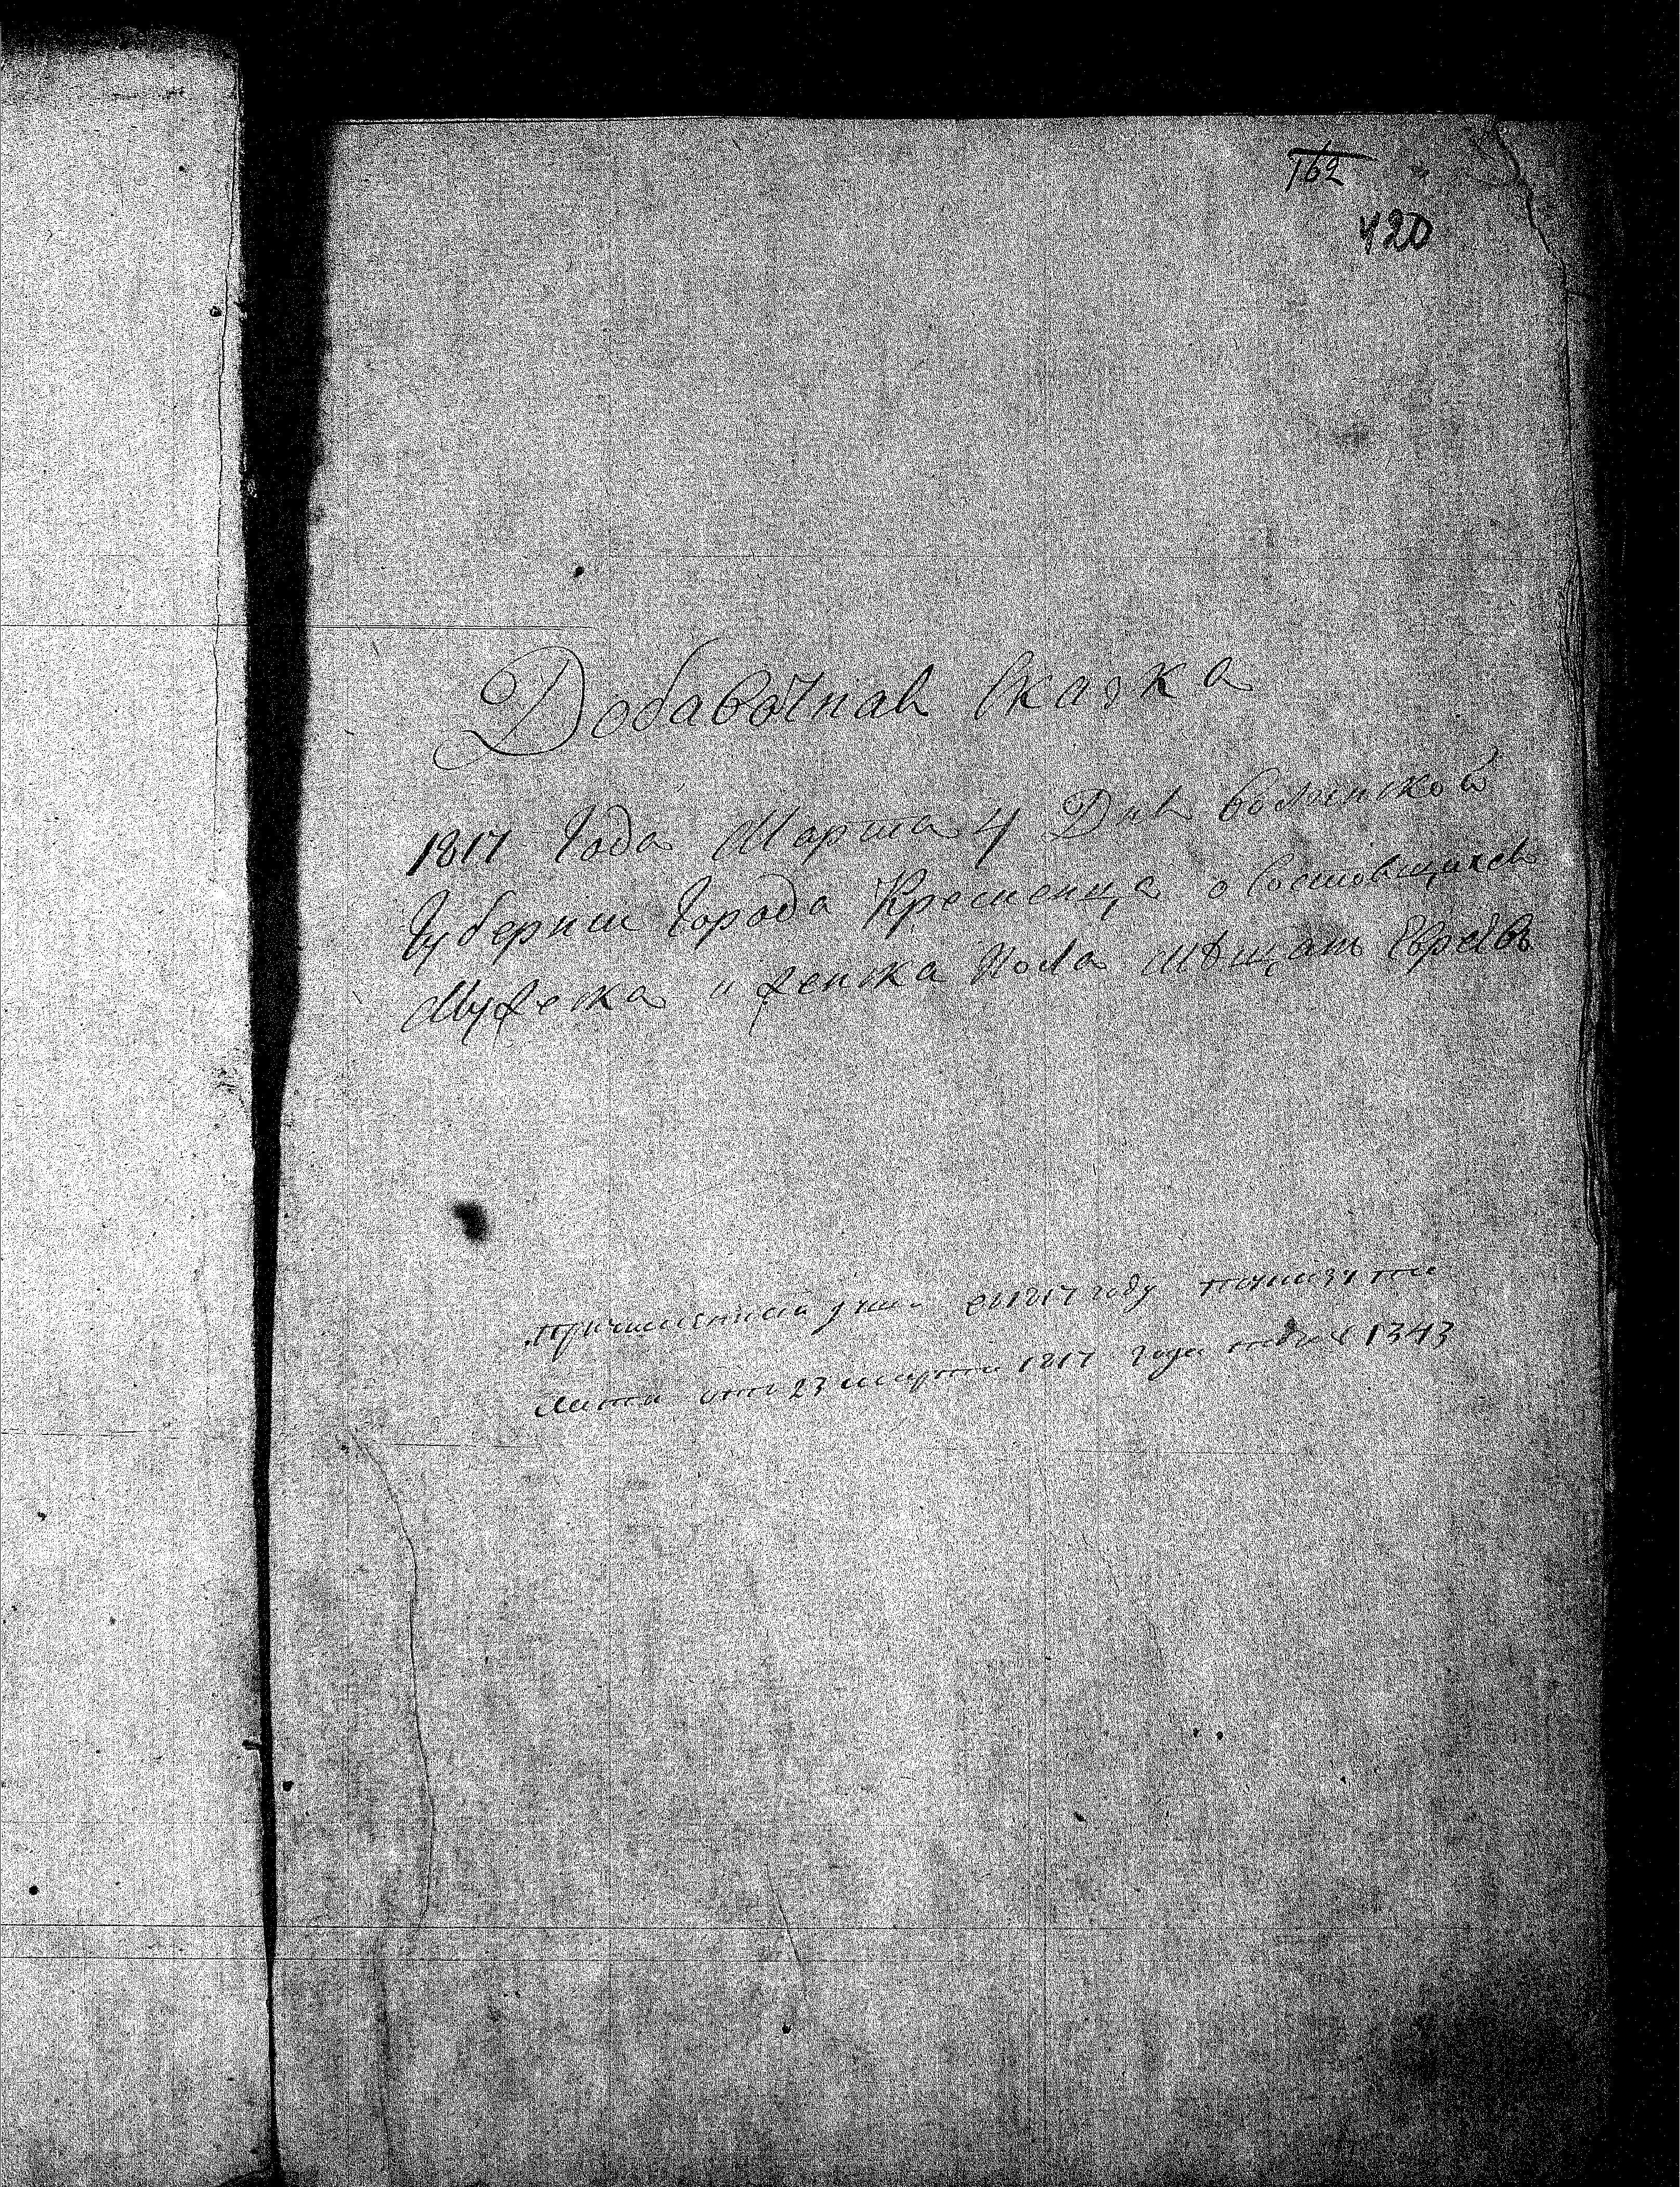 162
420
Добавочная Сказка
1817 Года Марта 4 Дня Волынской
Губернии Города Кременца о состоящихъ
Мужеска и женска Пола мѣщанъ Евреевъ
1817 году
отъ 23 марта 1817 года 1343